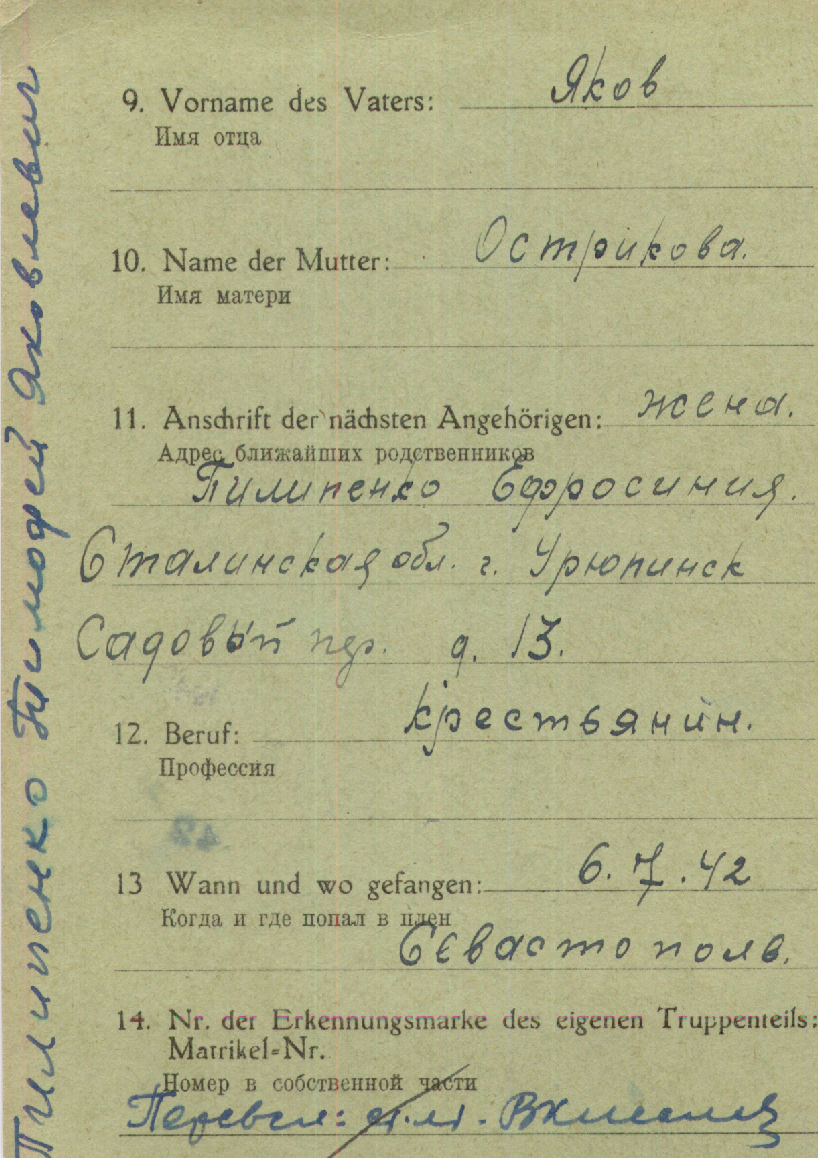 Пилипенко Тимофей Яковлевич
9. Vorname des Vaters: Яков
Имя отца
10. Name der Mutter: Острикова.
Имя матери
11. Anschrift der nächsten Angehörigen: жена.
Адрес ближайших родственников
Пилипенко Ефросиния.
Сталинская обл. г. Урюпинск
Садовый пер. д. 13.
12. Beruf: крестьянин.
Профессия
42
13 Wann und wo gefangen: 6.7.42
Когда и где попал в плен
Севастополь.
14. Nr. der Erkennungsmarke des eigenen Truppenteils:
Matrikel-Nr.
Номер в собственной части
Перевел: